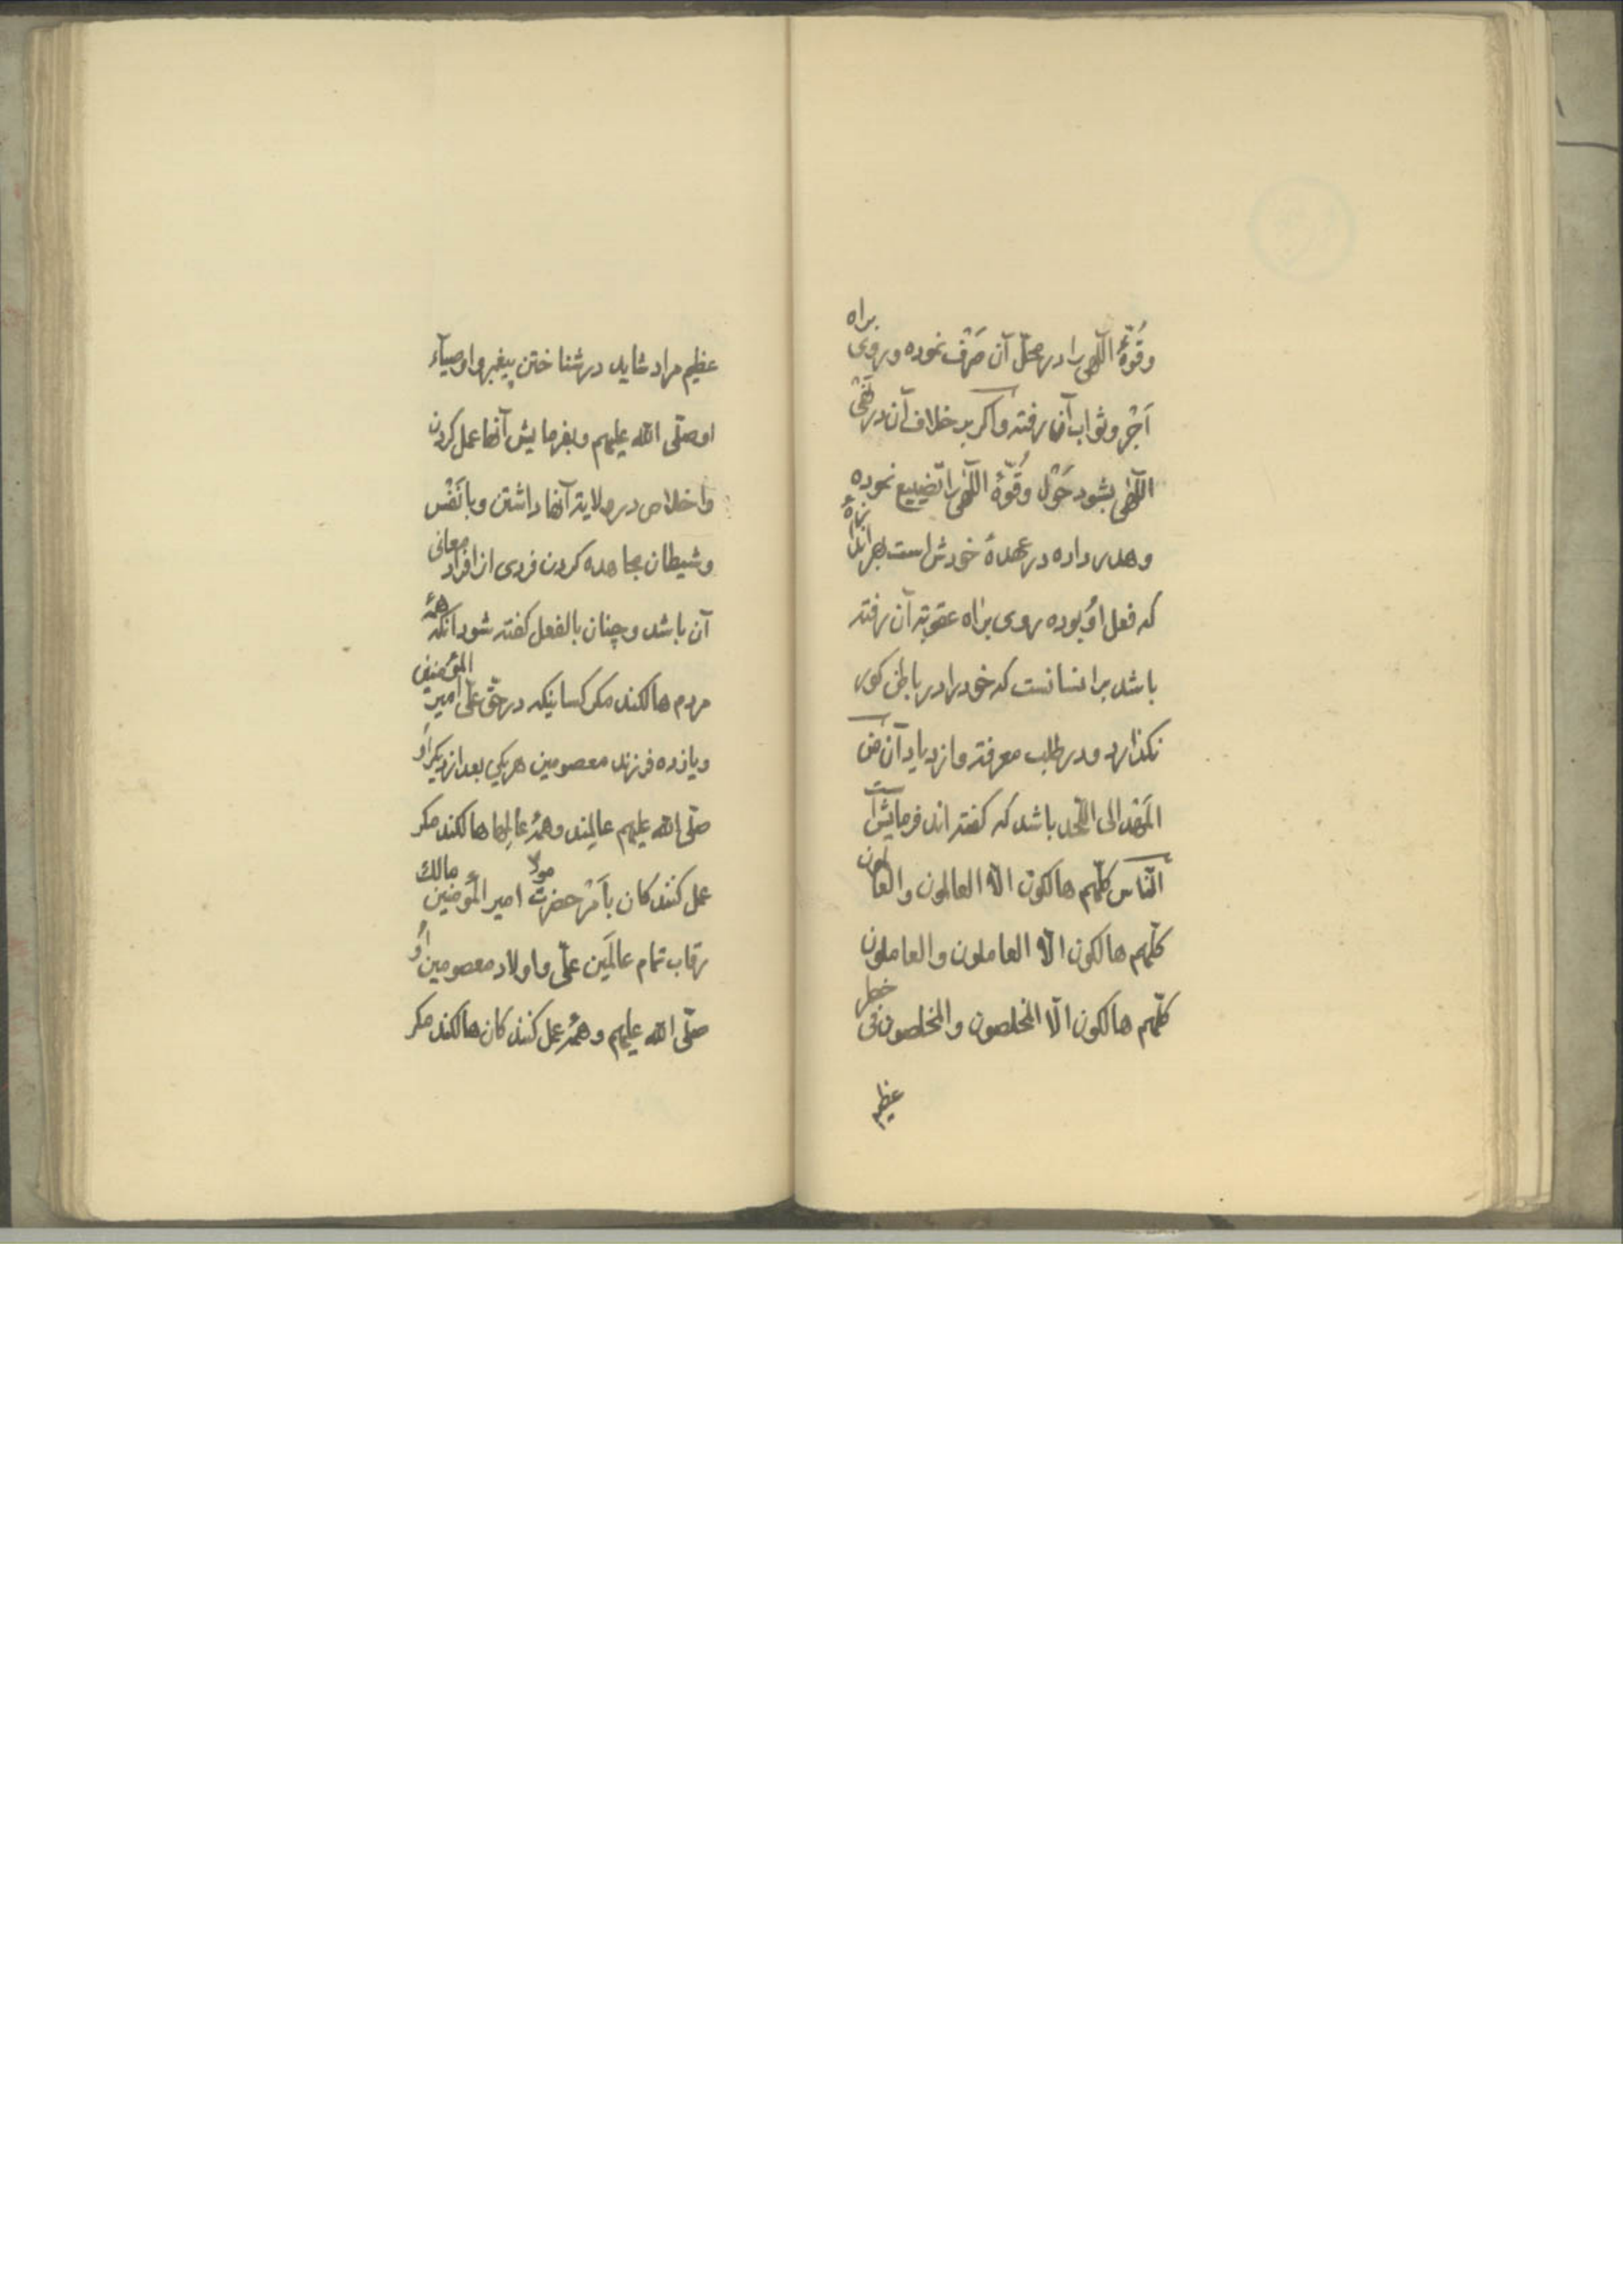 وقُوّهٔ اللّهی را در محلّ آن صَرْف نموده و روی براه
اَجْر و ثواب آن رفته و اکر بر خلاف آن در نَهْیِ
اللّهی بشود حَوْل و قُوّهٔ اللّهی را تضییع نموده
و هدر داده در عهدهٔ خودش است
که فعل اوُ بوده روی براه عقوبة آن رفته
باشد بر انسانست که خود را در باطن کور
نکذارد و در طلب معرفة و ازدیاد آن من
المَهْد الی اللّحد باشد که کفته اند فرمایش است
النّاس کلّهم هالکون الّا العالمون والعالمون
کلّهم هالکون الّا العاملون والعاملون
کلّهم هالکون الّا المخلصون والمخلصون فی خطر
عظیم
عظیم مراد شاید در شناختن پیغبر و اوصیآء
او صلّی الله علیهم و بفرمایش آنها عمل کردن
و اخلاص در ولایة آنها داشتن و با نَفْس
و شیطان مجاهده کردن فردی از افراد معانی
آن باشد و چنان بالفعل کفته شود آنکه همهٔ
مردم هالکند مکر کسانیکه در حقّ علی امیر المؤمنین
و یازده فرزند معصومین هر یکی بعد از دیکر اوُ
صلّی الله علیهم عالمِند و همهٔ عالمِها هالکند مکر
عمل کنندکان بأمْر حضرت مولا امیر المؤمنین مالك
رقاب تمام عالمَین علیّ و اولاد معصومین اوُ
صلّی الله علیهم و همهٔ عمل کنندکان هالکند مکر